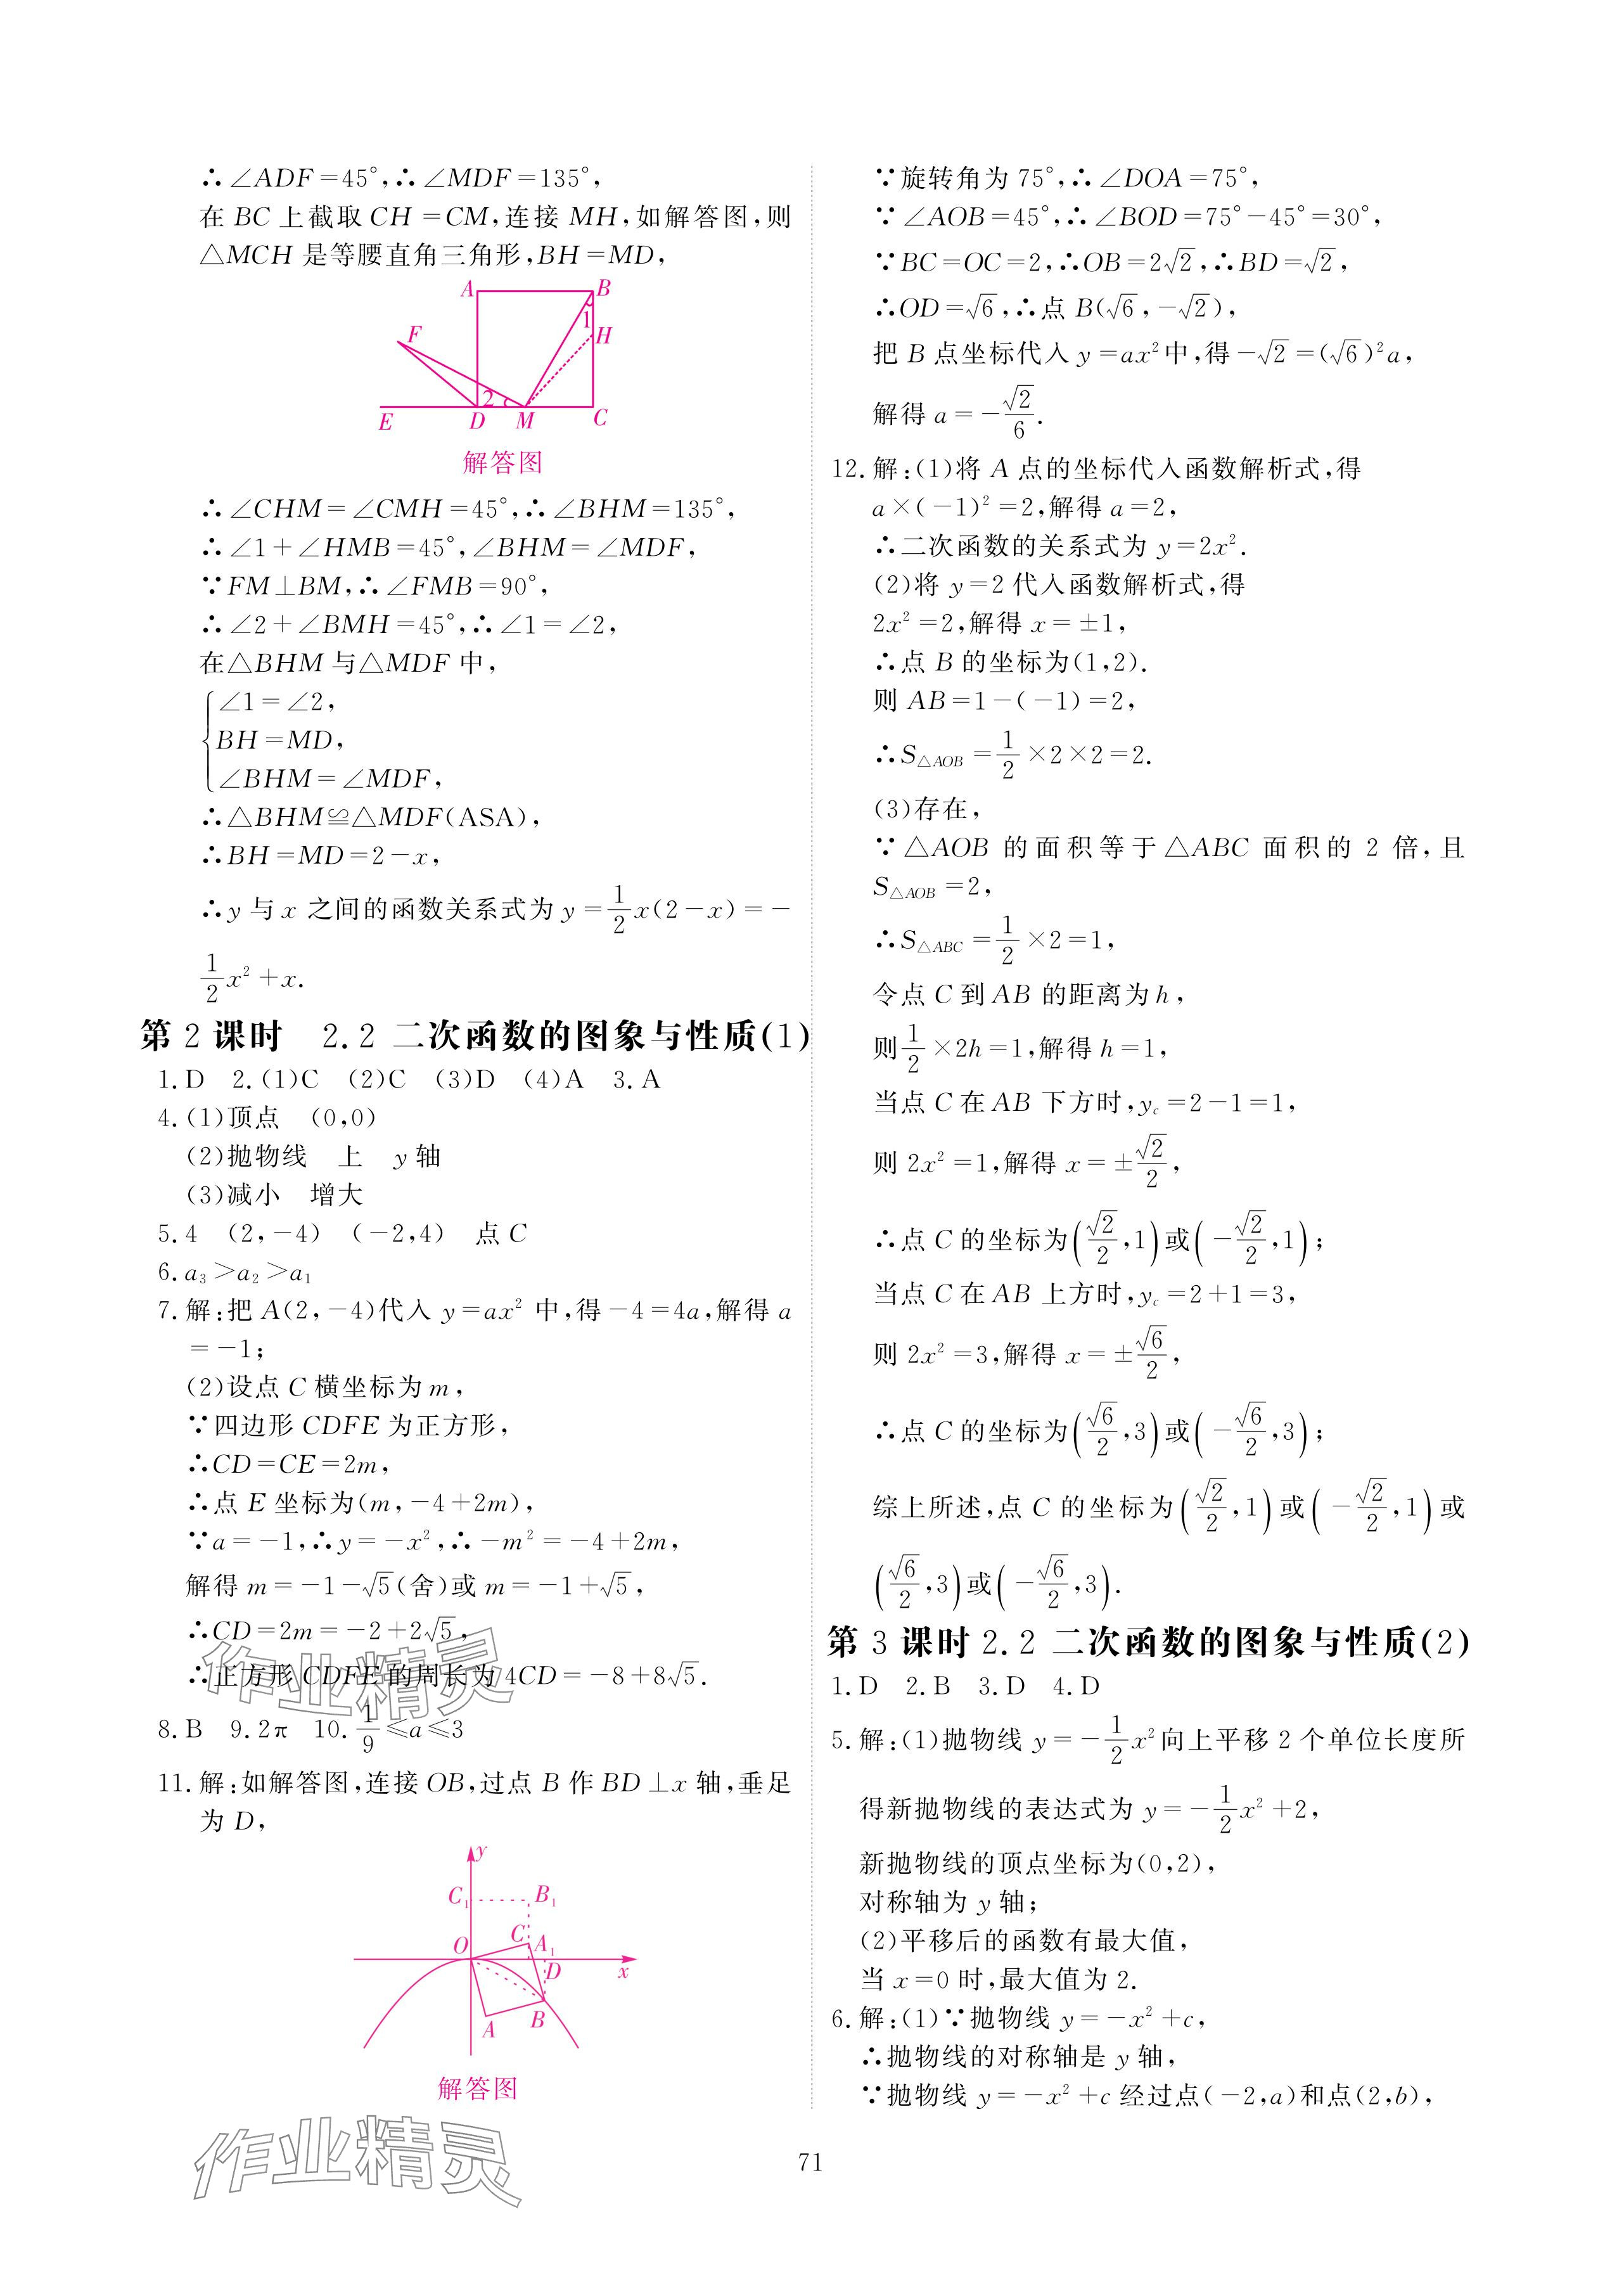 ∴∠ADF=45°,∴∠MDF=135°,
在 BC 上截取 CH=CM,连接 MH,如解答图,则
△MCH 是等腰直角三角形,BH=MD,
A B
1
F H
2
E D M C
解答图
∴∠CHM=∠CMH=45°,∴∠BHM=135°,
∴∠1+∠HMB=45°,∠BHM=∠MDF,
∵FM⊥BM,∴∠FMB=90°,
∴∠2+∠BMH=45°,∴∠1=∠2,
在△BHM 与△MDF 中,
{∠1=∠2,
BH=MD,
∠BHM=∠MDF,
∴△BHM≌△MDF(ASA),
∴BH=MD=2-x,
∴y 与 x 之间的函数关系式为 y=1/2x(2-x)=-
1/2x²+x.
第 2 课时 2.2 二次函数的图象与性质(1)
1.D 2.(1)C (2)C (3)D (4)A 3.A
4.(1)顶点 (0,0)
(2)抛物线 上 y 轴
(3)减小 增大
5.4 (2,-4) (-2,4) 点 C
6.a₃>a₂>a₁
7.解:把 A(2,-4)代入 y=ax² 中,得-4=4a,解得 a
=-1;
(2)设点 C 横坐标为 m,
∵四边形 CDFE 为正方形,
∴CD=CE=2m,
∴点 E 坐标为(m,-4+2m),
∵a=-1,∴y=-x²,∴-m²=-4+2m,
解得 m=-1-√5(舍)或 m=-1+√5,
∴CD=2m=-2+2√5,
∴正方形 CDFE 的周长为 4CD=-8+8√5.
作业精灵
8.B 9.2π 10.1/9≤a≤3
11.解:如解答图,连接 OB,过点 B 作 BD⊥x 轴,垂足
为 D,
y
C₁ B₁
O C A₁
D x
A B
解答图
作业精灵
∵旋转角为 75°,∴∠DOA=75°,
∵∠AOB=45°,∴∠BOD=75°-45°=30°,
∵BC=OC=2,∴OB=2√2,∴BD=√2,
∴OD=√6,∴点 B(√6,-√2),
把 B 点坐标代入 y=ax² 中,得-√2=(√6)²a,
解得 a=-√2/6.
12.解:(1)将 A 点的坐标代入函数解析式,得
a×(-1)²=2,解得 a=2,
∴二次函数的关系式为 y=2x².
(2)将 y=2 代入函数解析式,得
2x²=2,解得 x=±1,
∴点 B 的坐标为(1,2).
则 AB=1-(-1)=2,
∴S△AOB=1/2×2×2=2.
(3)存在,
∵△AOB 的面积等于△ABC 面积的 2 倍,且
S△AOB=2,
∴S△ABC=1/2×2=1,
令点 C 到 AB 的距离为 h,
则1/2×2h=1,解得 h=1,
当点 C 在 AB 下方时,yc=2-1=1,
则 2x²=1,解得 x=±√2/2,
∴点 C 的坐标为(√2/2,1)或(-√2/2,1);
当点 C 在 AB 上方时,yc=2+1=3,
则 2x²=3,解得 x=±√6/2,
∴点 C 的坐标为(√6/2,3)或(-√6/2,3);
综上所述,点 C 的坐标为(√2/2,1)或(-√2/2,1)或
(√6/2,3)或(-√6/2,3).
第 3 课时 2.2 二次函数的图象与性质(2)
1.D 2.B 3.D 4.D
5.解:(1)抛物线 y=-1/2x² 向上平移 2 个单位长度所
得新抛物线的表达式为 y=-1/2x²+2,
新抛物线的顶点坐标为(0,2),
对称轴为 y 轴;
(2)平移后的函数有最大值,
当 x=0 时,最大值为 2.
6.解:(1)∵抛物线 y=-x²+c,
∴抛物线的对称轴是 y 轴,
∵抛物线 y=-x²+c 经过点(-2,a)和点(2,b),
71